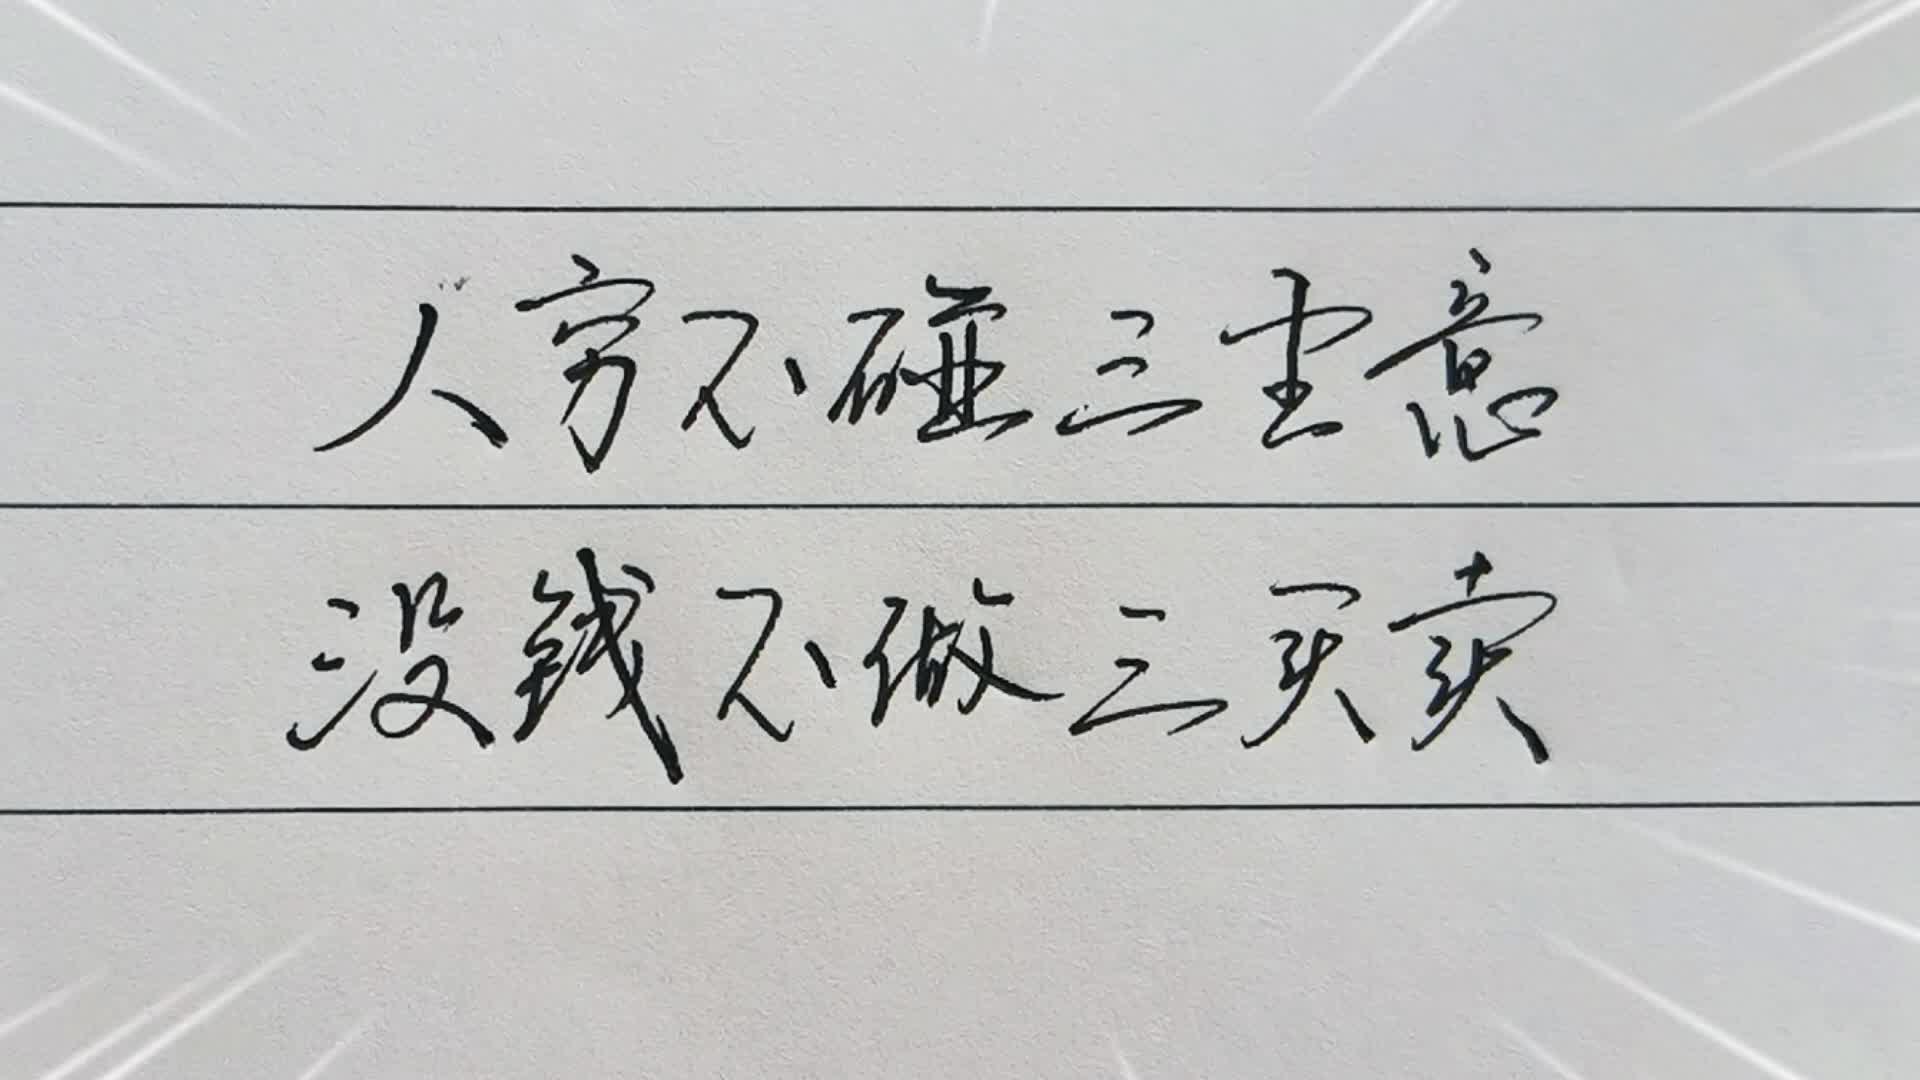 人穷不碰三生意
没钱不做三买卖